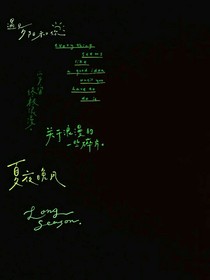 遇见
夕阳和你
everything
seems
like
a good idea
until you
have to
do it
关于浪漫的
一些碎片。
夏夜晚风
Long
Season.